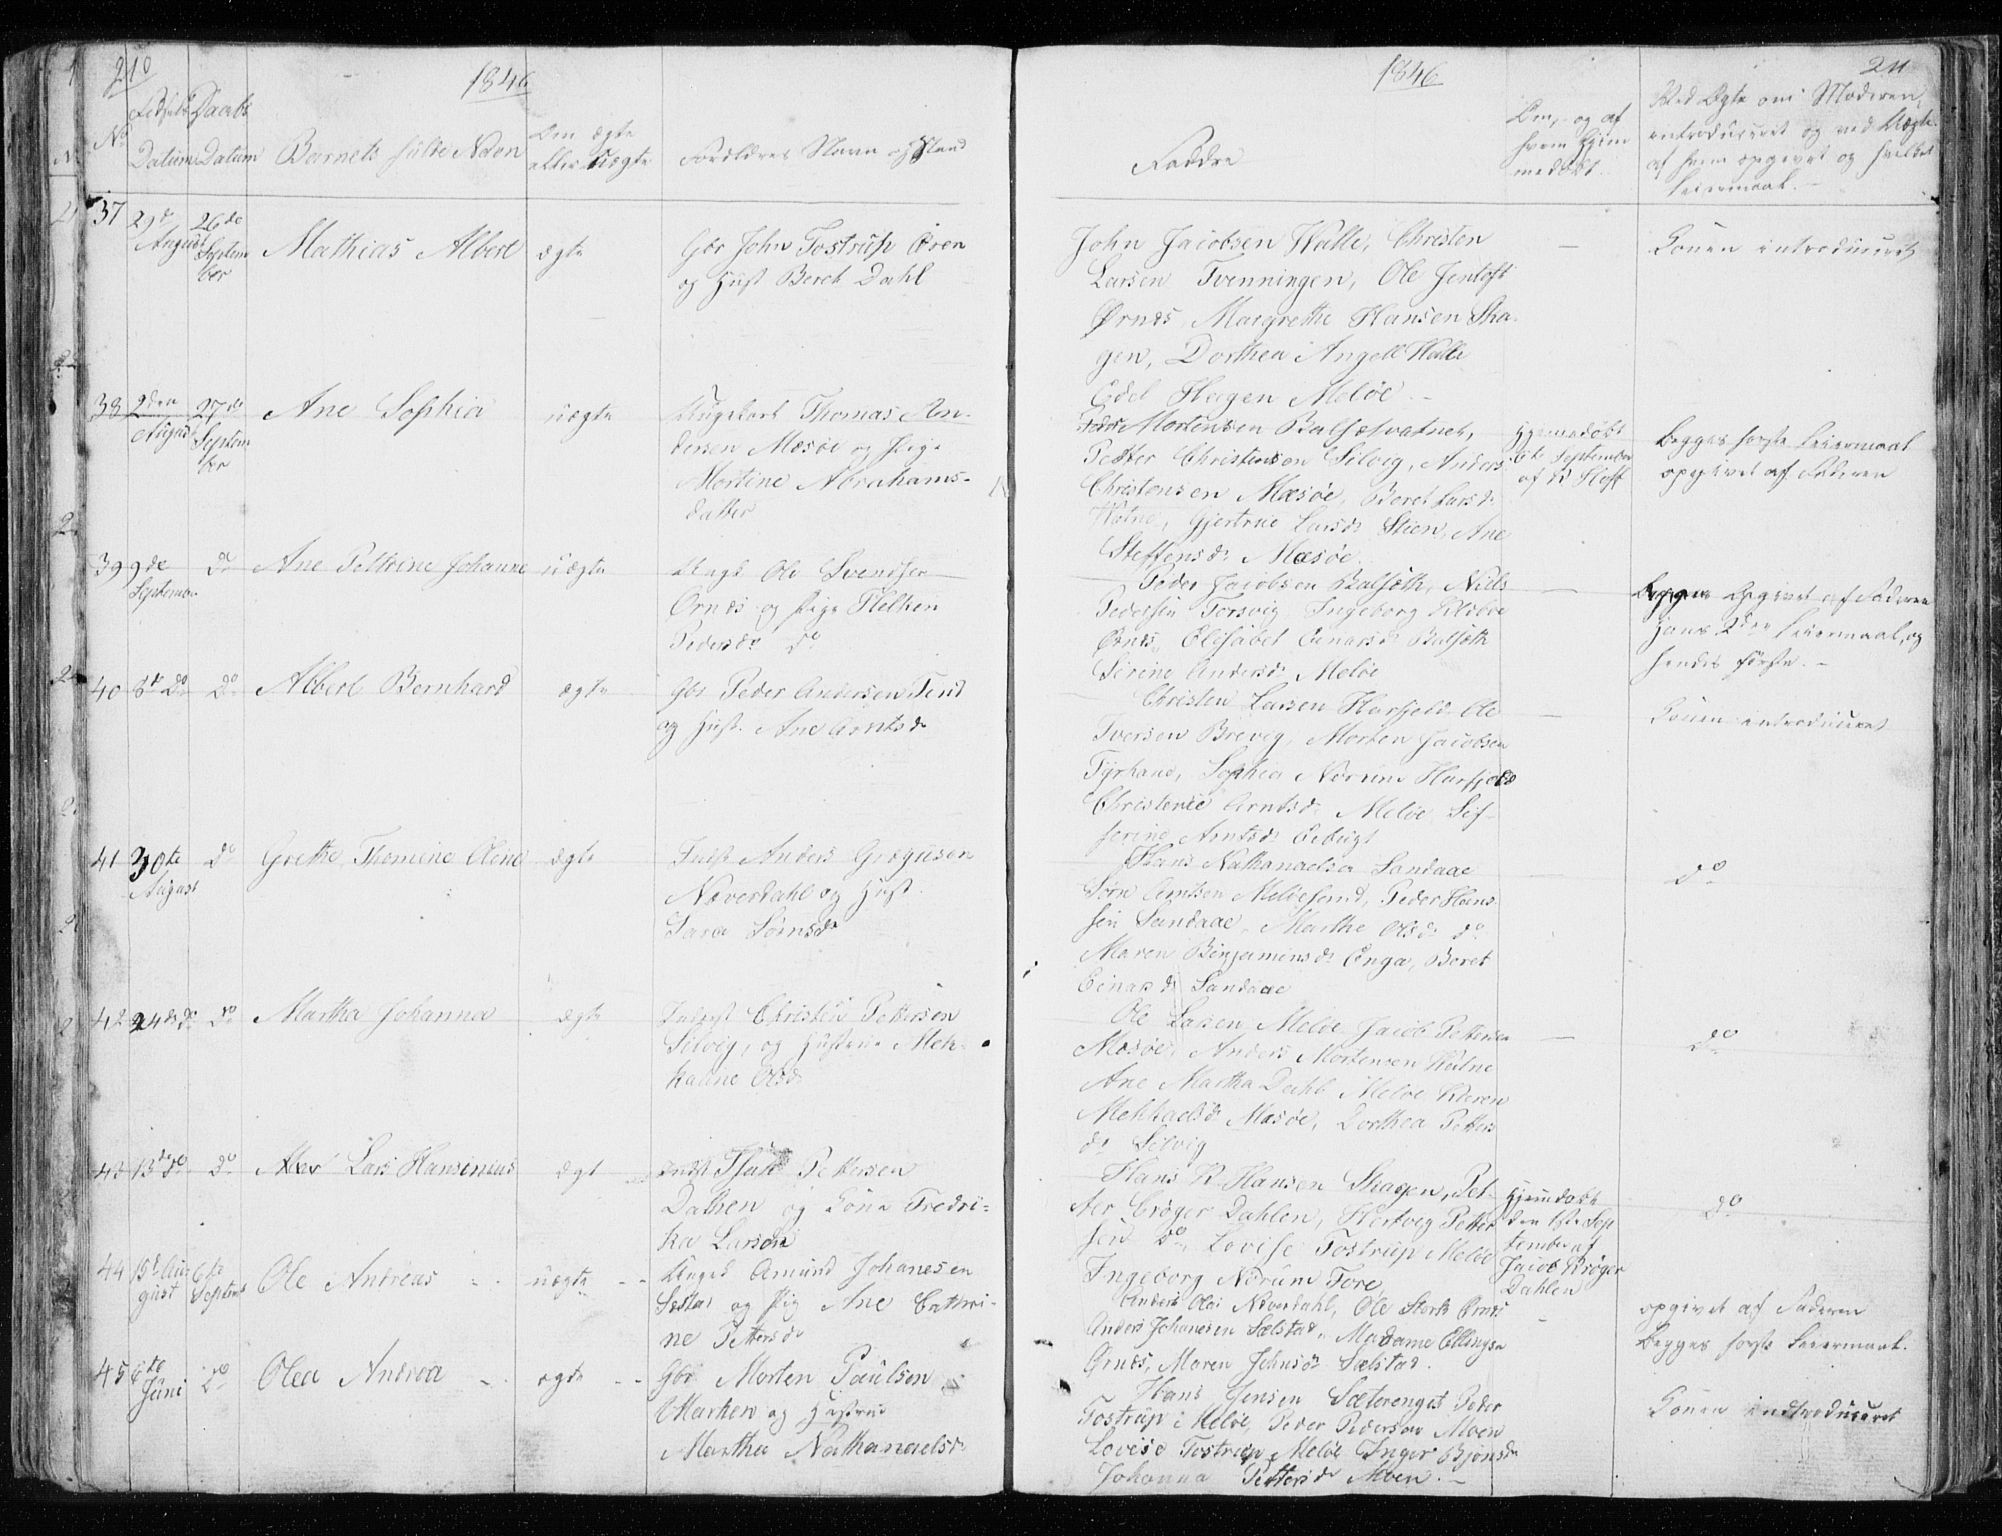 210
1846
No
Fødsels Daabs
Datum Datum Barnets fulde Navn
Om ægte eller uægte
Forældres Navn og Stand
37 29de August 26de September Mathias Albert ægte
Gbr John Tostrup Ören
og Hust Beret Dahl
38 2den August 27de September Ane Sophia uægte
Ungekarl Thomas An-
dersen Mæsöe og Pige
Mortine Abrahams-
datter
39 9de September Do Ane Pettrine Johanne uægte
Ungk Ole Svendsen
Ornæs og Pige
Pedersdr Do
40 8de Do Do Albert Bernhard ægte
Gbr Peder Andersen
og Hust. Ane Arntsdr
41 30te August Do Grethe Thomine Olene ægte
Indst Anders Gregusen
Naverdahl og Hust.
Sara Sörensdr
42 24de do Do Martha Johanna ægte
Inderst Christen Pettersen
Selvig, og Hustrue Meh-
kaline Olsdr
43 13de do Do Lars Hansenius ægt
Indst Isak Pettersen
Dalhen og Kone Fredri-
ka Larsdr
44 15de August 6te Septemb Ole Andreas uægte
Ungk Amund Johanesen
og Pig Ane Cathri-
ne Pettersdr
45 6te Juni Do Olea Andrea ægte
Gbr Morten Paulsen
Marken og Hustrue
Martha Nathanaelsdr
1846
211
Faddre
Om, og af
hvem hjem
medöbt.
Ved Ægte om Moderen
introduceret og ved Uægte
af hvem opgivet og hvilket
Leiermaal.
John Jacobsen Walle, Christen
Larsen Tvenningen, Ole Jentoft
Ørnes, Margrethe Hansen Ska-
gen, Dorthea Angell Walle
Edel Hagen Melöe
Konen introduceret
Peder Mortensen
Petter Christensen Selvig, Anders
Christensen Mæsöe, Beret Larsdr
Gjertrue Larsdr Stien, Ane
Steffensdr Mæsöe
Hjemedöbt
6te September
af
Begges første Leiermaal
opgivet af Faderen
Peder Jacobsen Niels
Pedersen Forsvig Ingeborg
Ørnes, Elisabet Einarsdr
Serine Andersdr Melöe
Opgivet af Faderen
hans 2den Leiermaal, og
hendes første.
Christen Larsen Ole
Iversen Brevig, Morten Jacobsen
Sophia
Christence Arntsdr Melöe
Arntsdr
Konen introduceret
Hans Nathanaelsen Sandaae
Sörn Arntsen Melöesund, Peder Han-
sen Sandaae, Marthe Olsdr do
Maren Benjaminsdr Enga, Beret
Einarsdr Sandaae
Do
Ole Larsen Melöe Jacob Pettersen
Mæsöe, Anders Mortensen
Ane Martha Dahl Melöe Karen
Mehkaelsdr Mæsöe, Dorthea Petters
dr Selvig
Do
Hans R Hansen Skagen, Pet-
ter Cröger Dahlen, Hertvig Petter
sen Do, Lovise Tostrup Melöe
Ingeborg Norum Fore
Hjemdöbt
den 1ste Sep
tember af
Jacob Kröger
Dahlen
Do
Anders Naverdahl, Ole Ørnes
Anders Johanesen Madame Ellingsen
Ørnæs, Maren Johnsdr
opgivet af Faderen
Begges første Leiermaal.
Hans Jensen Sæterenget Peder
Tostrup i Melöe, Peder Pedersen Moen
Lovise Tostrup Melöe Inger Björnsdr
Johanna Pettersdr Moen
Konen indtroduceret